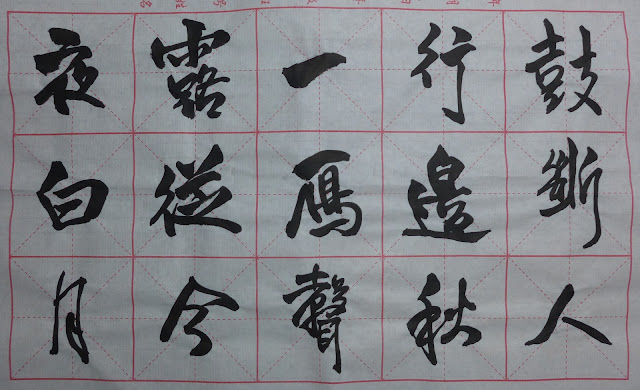 鼓斷人
行邊秋
一鴈聲
露從今
夜白月